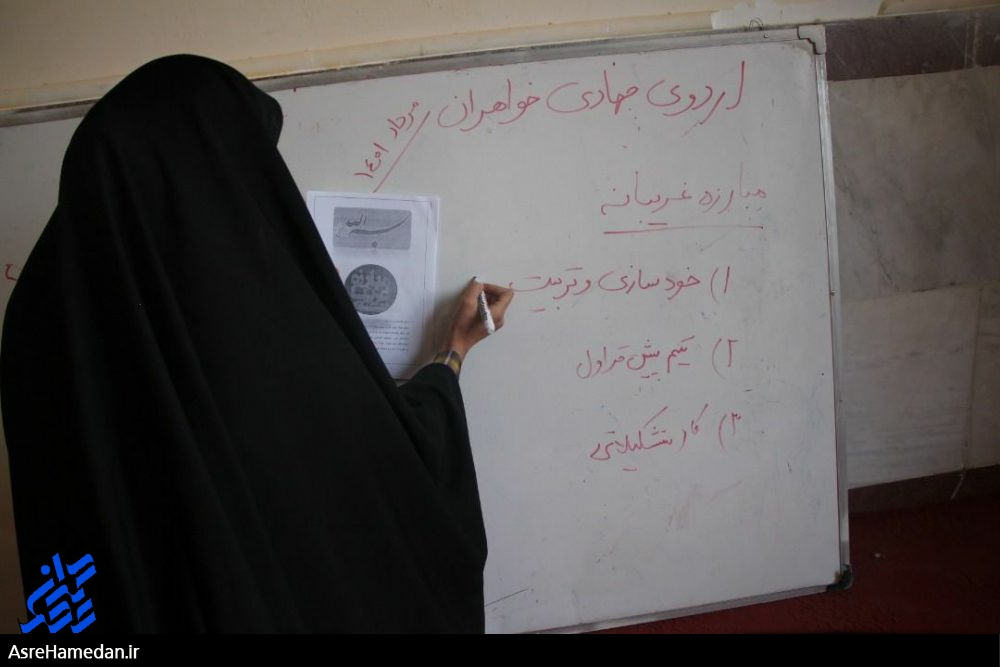 اردوی جهادی خواهران
مرداد ۱۴۰۱
مبارزه غریبانه
۱) خودسازی و تربیت
۲) تیم پیش قراول
۳) کار تشکیلاتی
بسم الله
AsreHamedan.ir